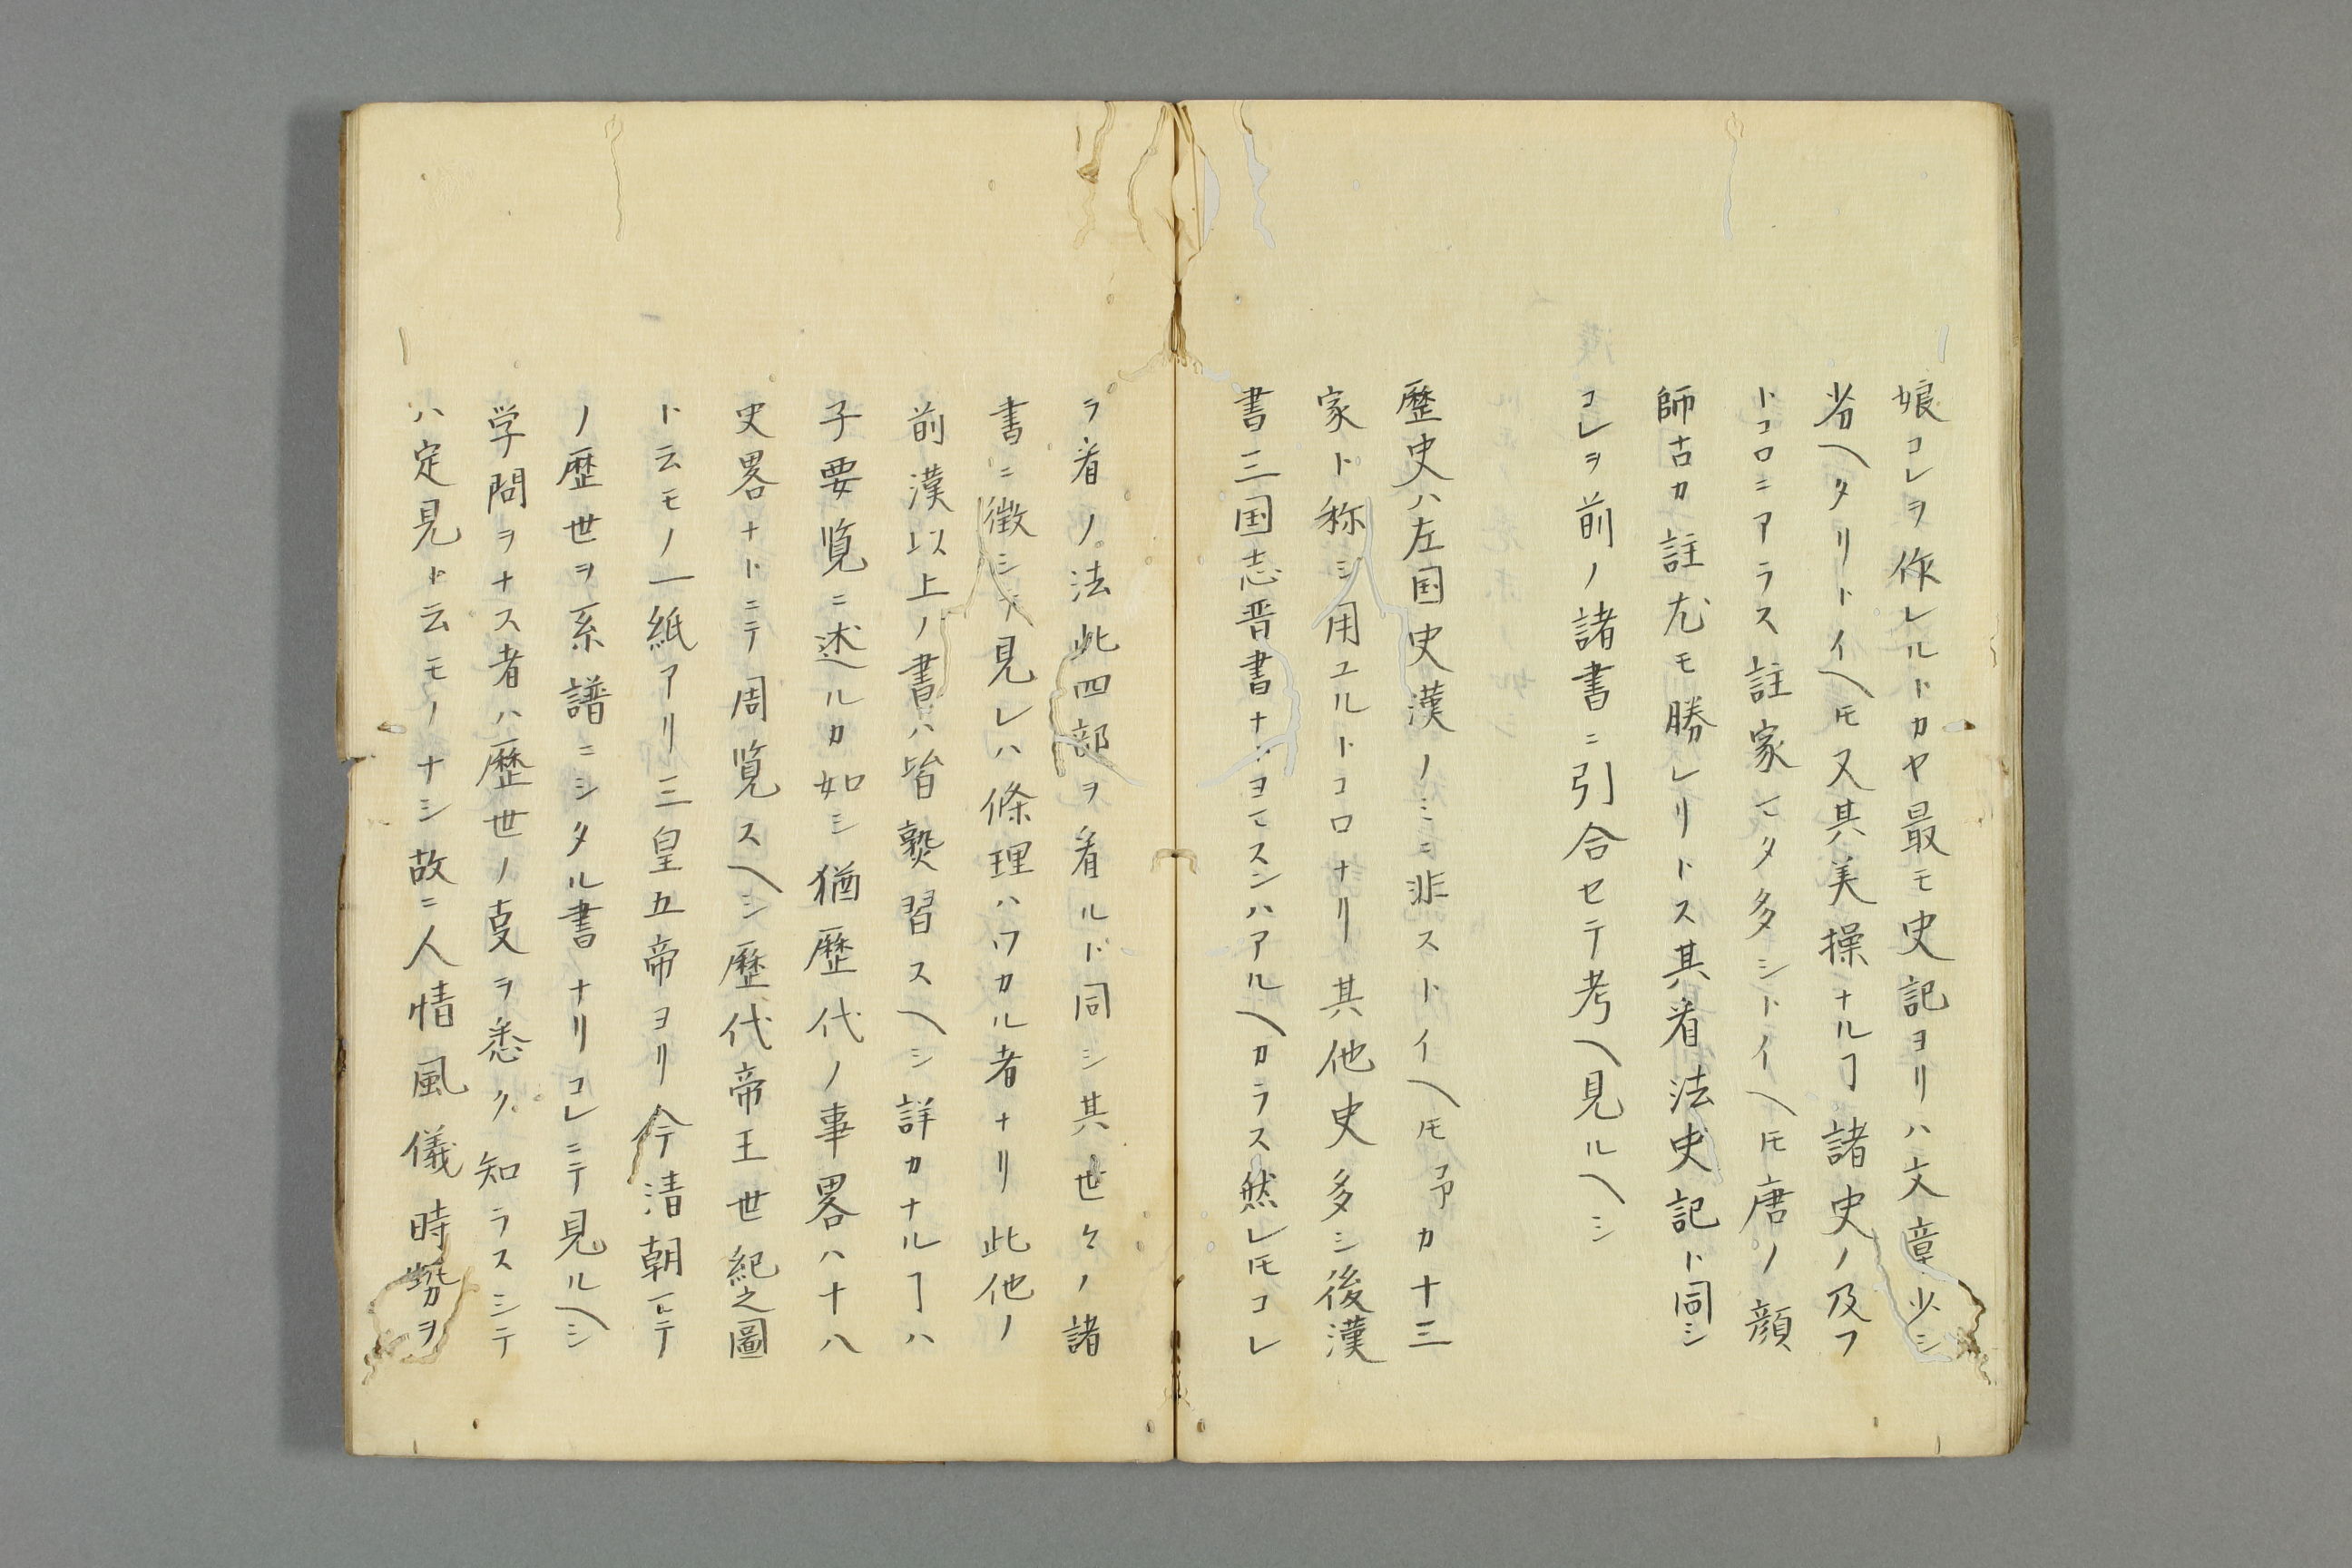 娘コレヲ作レルトカヤ最モ史記ヨリハ文章少シ
劣ヘタリトイヘ𪜈又其美操ナルヿ諸史ノ及フ
トコロニアラス註家マタ多シトイヘ𪜈唐ノ顔
師古カ註尤モ勝レリトス其看法史記ト同シ
コレヲ前ノ諸書ニ引合セテ考ヘ見ルヘシ
歴史ハ左国史漢ノミニ非ストイヘ𪜈予カ十三
家ト称シ用ユルトコロナリ其他史多シ後漢
書三国志晋書ナトヨマスンハアルヘカラス然レ𪜈コレ
ラ看ノ法此四部ヲ看ルト同シ其世々ノ諸
書ニ徴シテ見レハ條理ハワカル者ナリ此他ノ
前漢以上ノ書ハ皆熟習スヘシ詳カナルヿハ
子要覧ニ述ルカ如シ猶歴代ノ事畧ハ十八
史畧ナトニテ周覧スヘシ歴代帝王世紀之圖
ト云モノ一紙アリ三皇五帝ヨリ今清朝マテ
ノ歴世ヲ系譜ニシタル書ナリコレニテ見ルヘシ
学問ヲナス者ハ歴世ノ叓ヲ悉ク知ラスシテ
ハ定見ト云モノナシ故ニ人情風儀時勢ヲ